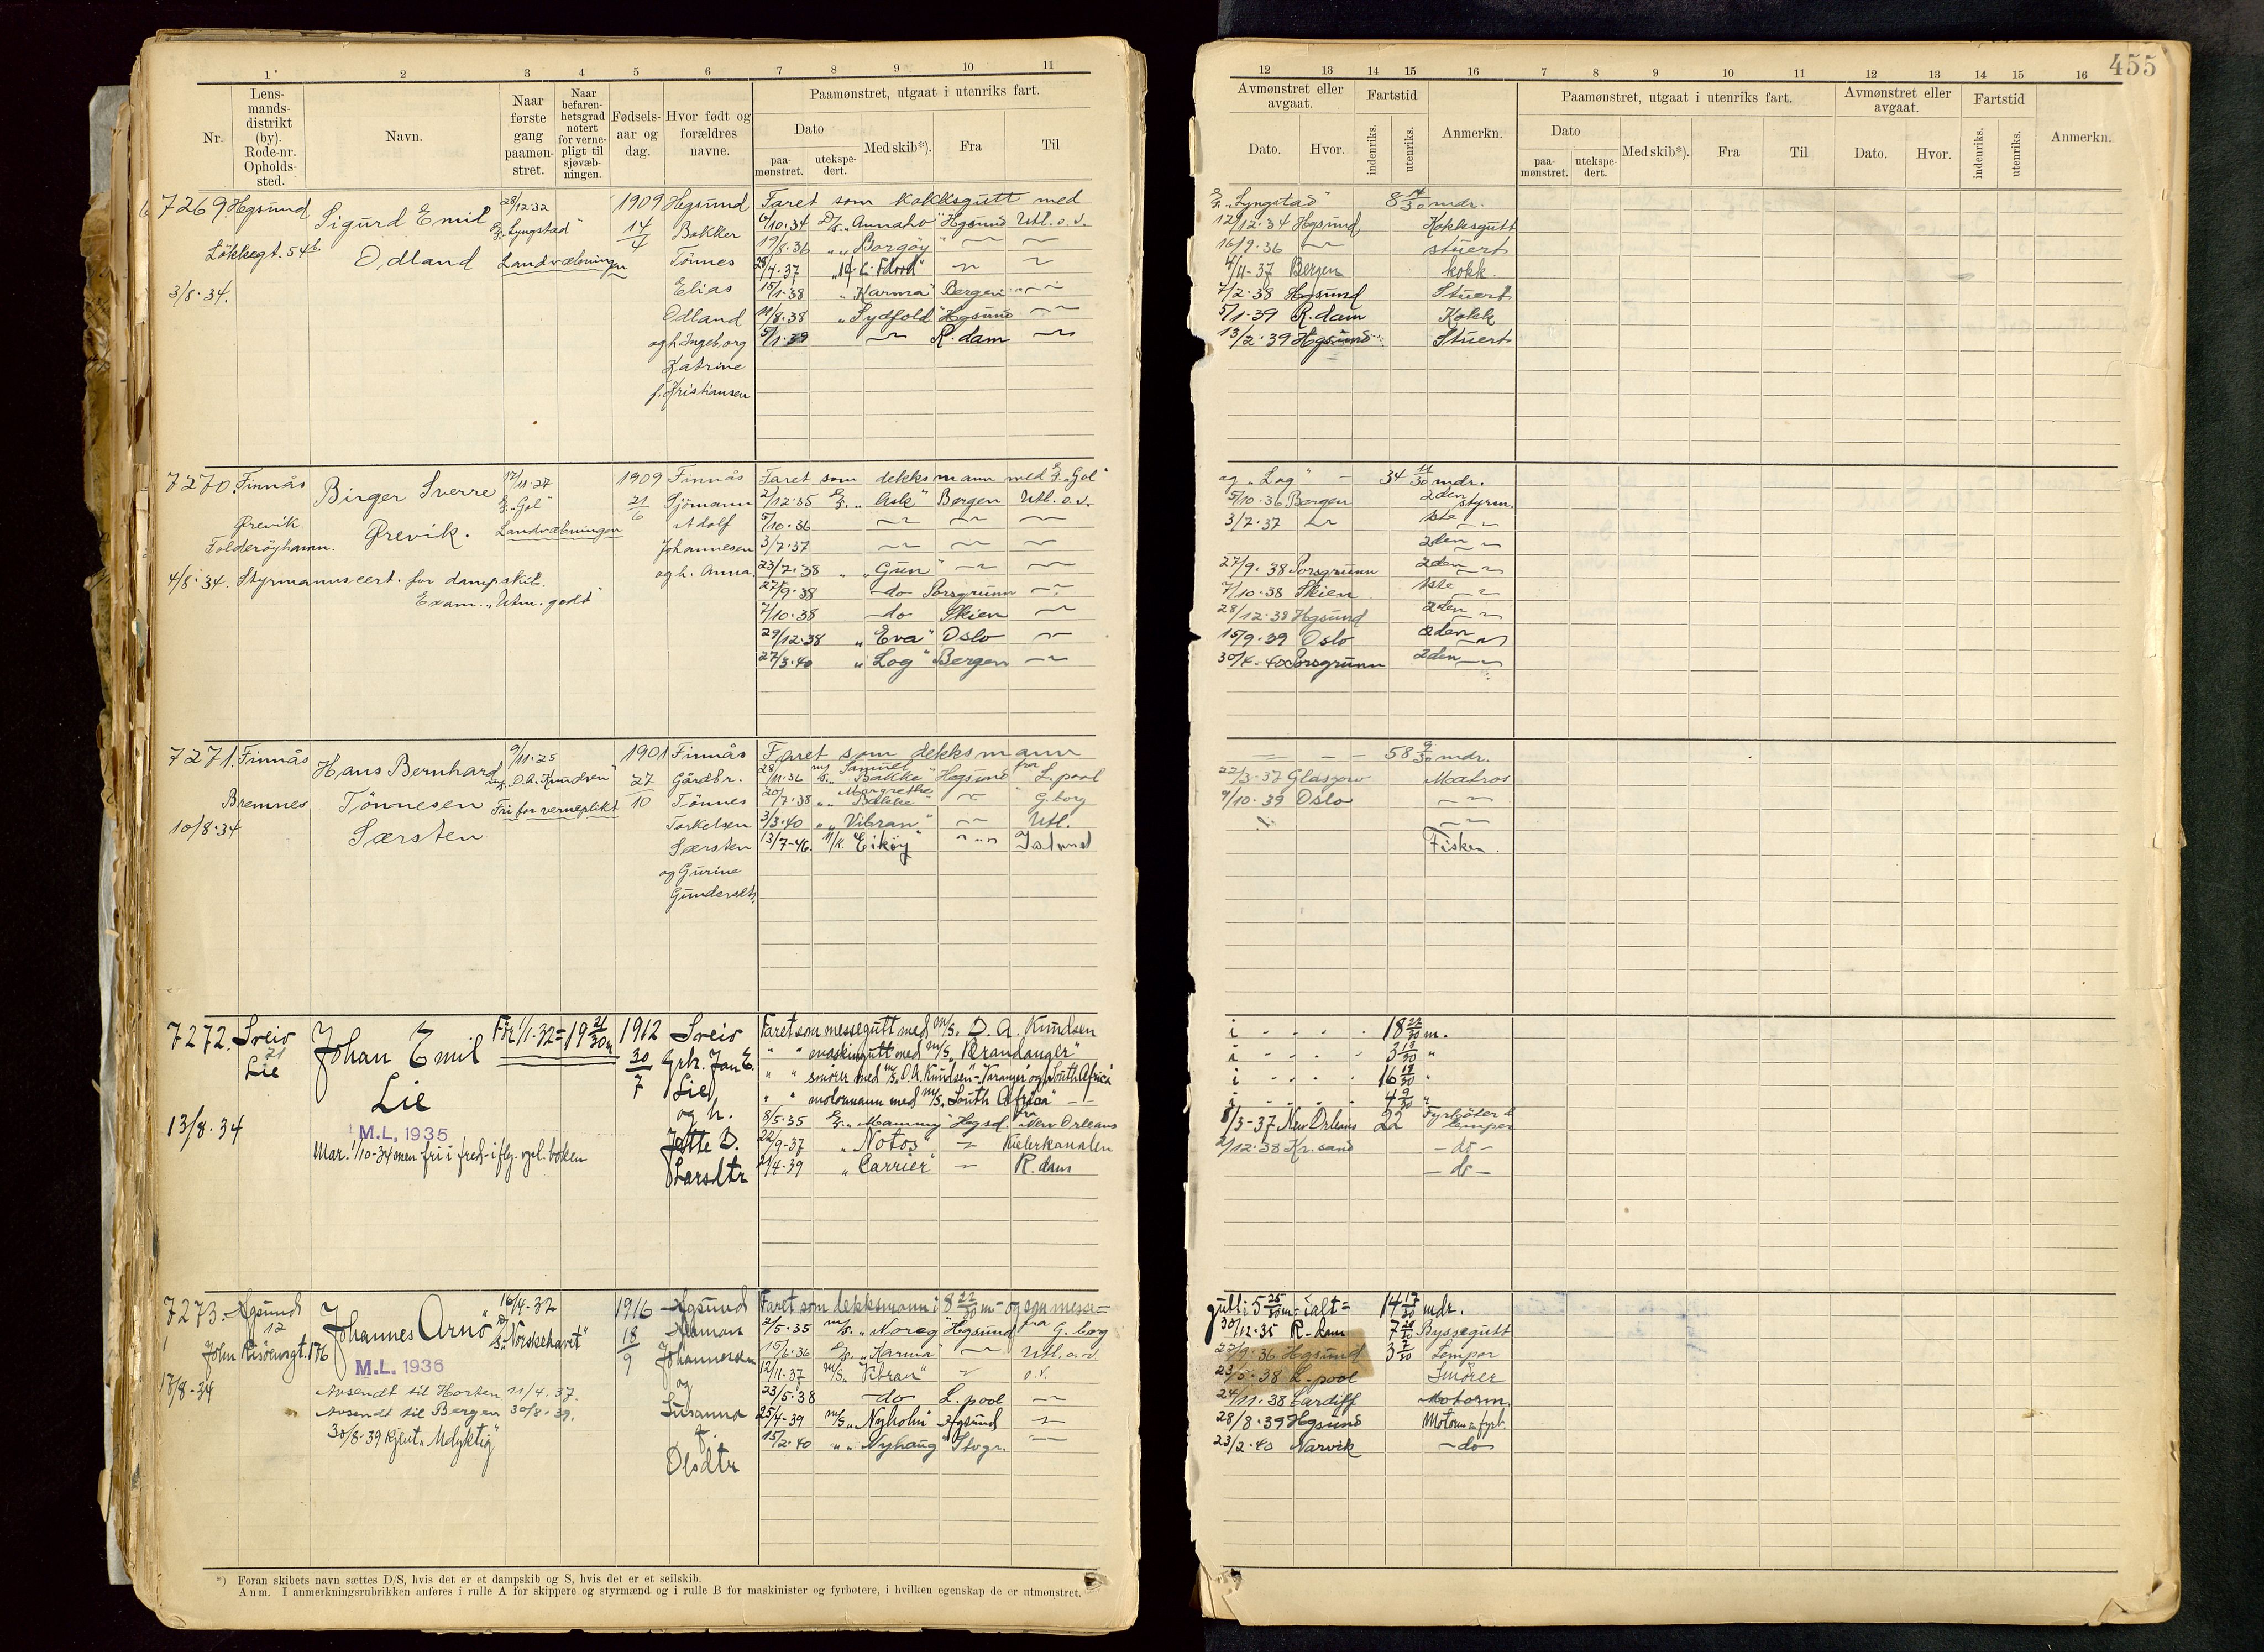 455
1 2 3 4 5 6 7 8 9 10 11
Nr.
Lens-
mands-
distrikt
(by).
Rode-nr.
Opholds-
sted.
Navn.
Naar
første
gang
paamøn-
stret.
Naar
befaren-
hetsgrad
notert
for verne-
pligt til
sjøvæb-
ningen.
Fødsels-
aar og
dag.
Hvor født og
forældres
navne.
Paamønstret, utgaat i utenriks fart.
Dato
paa-
mønstret.
utekspe-
dert.
Med skib*).
Fra
Til
12 13 14 15 16 7 8 9 10 11 12 13 14 15 16
Avmønstret eller
avgaat.
Dato.
Hvor.
Fartstid
indenriks.
utenriks.
Anmerkn.
Paamønstret, utgaat i utenriks fart.
Dato
paa-
mønstret.
utekspe-
dert.
Med skib*).
Fra
Til
Avmønstret eller
avgaat.
Dato.
Hvor.
Fartstid
indenriks.
utenriks.
Anmerkn.
7269. Hgsund
Løkkegt. 54b.
3/8.34.
Sigurd Emil
Odland
28/12.32
D/S. "Lyngstad"
Landvæbningen
1909
14/4
Hgsund
Bakker
Tönnes
Elias
Odland
og h. Ingeborg
Katrine
f. Kristiansen
Faret som kokksgutt med
6/10.34 D/S. "Annaho" Hgsund Utl. o.v.
19/8.36 " "Borgøy" — —
"Karma" Bergen — —
11/8.38 "Sydfold" Hgsund — —
5/1.39 — R.dam —
D/S. "Lyngstad" 8 14/30 mdr.
12/12.34 Hgsund Kokksgutt
16/9.36 — stuert
4/11-37 Bergen kokk.
7/2.38 Hgsund Stuert
5/1.39 R.dam Kokk
13/2.39 Hgsund Stuert
7270. Finnås
Grevik
Folderöyhamn.
4/8.34. Styrmannscert. for dampskib.
Exam. "Utm. godt"
Birger Sverre
Grevik.
17/11.27
D/S. "Gol"
Landvæbningen
1909
21/6
Finnås
Sjömann
Adolf
Johannesen
og h. Anna.
Faret som dekksmann med D/S. "Gol"
2/12.35 D/S. "Ask" Bergen Utl. o.v.
5/10.36 — — —
3/7.37 — — —
23/7.38 " "Gun" — —
27/9.38 — do Porsgrunn —
7/10.38 — do Skien —
29/12.38 "Eva" Oslo —
27/3.40 "Log" Bergen —
og "Log" — 34 11/30 mdr.
5/10.36 Bergen 2den styrm.
3/7.37 — 1ste —
2den —
27/9.38 Porsgrunn 2den —
7/10.38 Skien 1ste —
28/12.38 Hgsund 2den —
15/9.39 Oslo 2den —
30/4-40 Porsgrunn 2den —
7271. Finnås
Bremnes
10/8.34
Hans Bernhard
Tönnesen
Særsten
9/11.25
"O.A. Knudsen"
Fri for verneplikt
1901
27/10
Finnås
Gårdbr.
Tönnes
Torkelsen
Særsten
og Gurine
Gundersdtr.
Faret som dekksmann
28/11.36 M/S. "Samuel Bakke" Hgsund fra L.pool
20/7.38 " "Margrethe Bakke" — " G.borg
3/3.40 " "Vibran" — Utl.
13/7-46. M/K. "Eikøy" — Island
— — — 58 9/30 mdr.
22/3-37 Glasgow Matros
9/10.39 Oslo —
—
Fisken.
7272. Sveio
21
Lie
13/8-34
Johan Emil
Lie
M.L. 1935
Mar. 1/10-34 men fri i fred - iflg. vpl. boken
Før 1/1.32 = 19 21/30 m
1912
30/7
Sveio
Grbr. Jan E.
Lie
og h.
Jette D.
Larsdtr
Faret som messegutt med M/S. O. A. Knudsen
" " maskingutt med M/S. "Brandanger"
" " smører med M/S. "O.A. Knudsen" - "Varanger" og "South Africa"
" " motormann med M/S. "South Africa" — —
8/5.35 D/S. "Mammy" Hgsd. fra New Orleans
22/9-37 "Notos" — Kielerkanalen
"Carrier" — R.dam
i - - - - 18 22/30 m.
i - - - - 3 13/30 "
i - - - - 16 18/30 "
i - - - - 4 9/30 "
8/3-37 New Orleans 22 Fyrbøter & Lemper
2/12.38 Kr.sand — do —
— do —
7273. Hgsund
12
John Risöensgt. 176
Johannes Arnö
M.L. 1936
Avsendt til Horten 11/4.37.
Avsendt til Bergen 30/8.39.
30/8.39 Kjent "Udyktig"
16/4-32
D/S. "Norskehavet"
1916
18/9
Hgsund
Johannessen
og
Susanna
f.
Olsdtr
Faret som dekksmann i 8 22/30 m - og som messe=
2/5.35 M/S. "Noreg" Hgsund fra G.borg
15/6.36 D/S. "Karma" — Utl. o.v.
12/11-37 M/S. "Vibran" — o.v.
23/5.38 — do L.pool —
25/4-39 M/S. "Nyholm" Hgsund —
15/2.40 " "Nyhaug" Stvgr. —
gutt i 5 25/30 m = ialt = 14 17/30 mdr.
30/12.35 R.dam 7 28/30 Byssegutt
22/9.36 Hgsund 3 7/30 Lemper
23/5.38 L.pool Smører
24/11.38 Cardiff Motorm.
28/8.39 Hgsund Motorm & fyrb.
23/2.40 Narvik — do
*) Foran skibets navn sættes D/S, hvis det er et dampskib og S, hvis det er et seilskib.
Anm. I anmerkningsrubrikken anføres i rulle A for skippere og styrmænd og i rulle B for maskinister og fyrbøtere, i hvilken egenskap de er utmønstret.